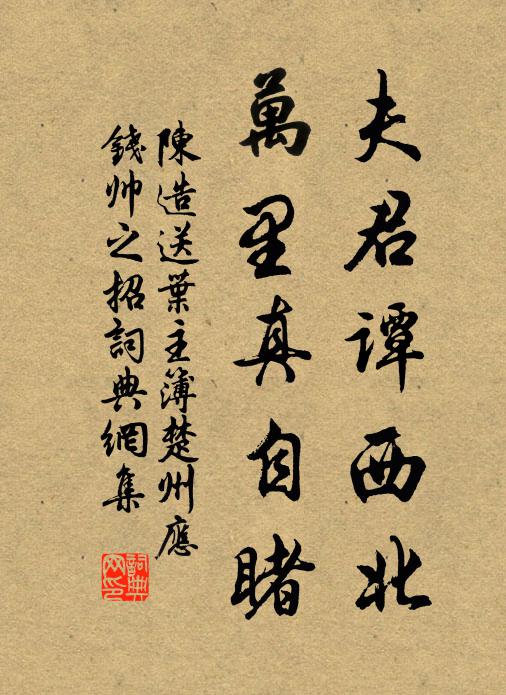 夫君谭西北
萬里真自睹
陳造送葉主簿楚州應
錢帅之招詞典網集
詞典网印